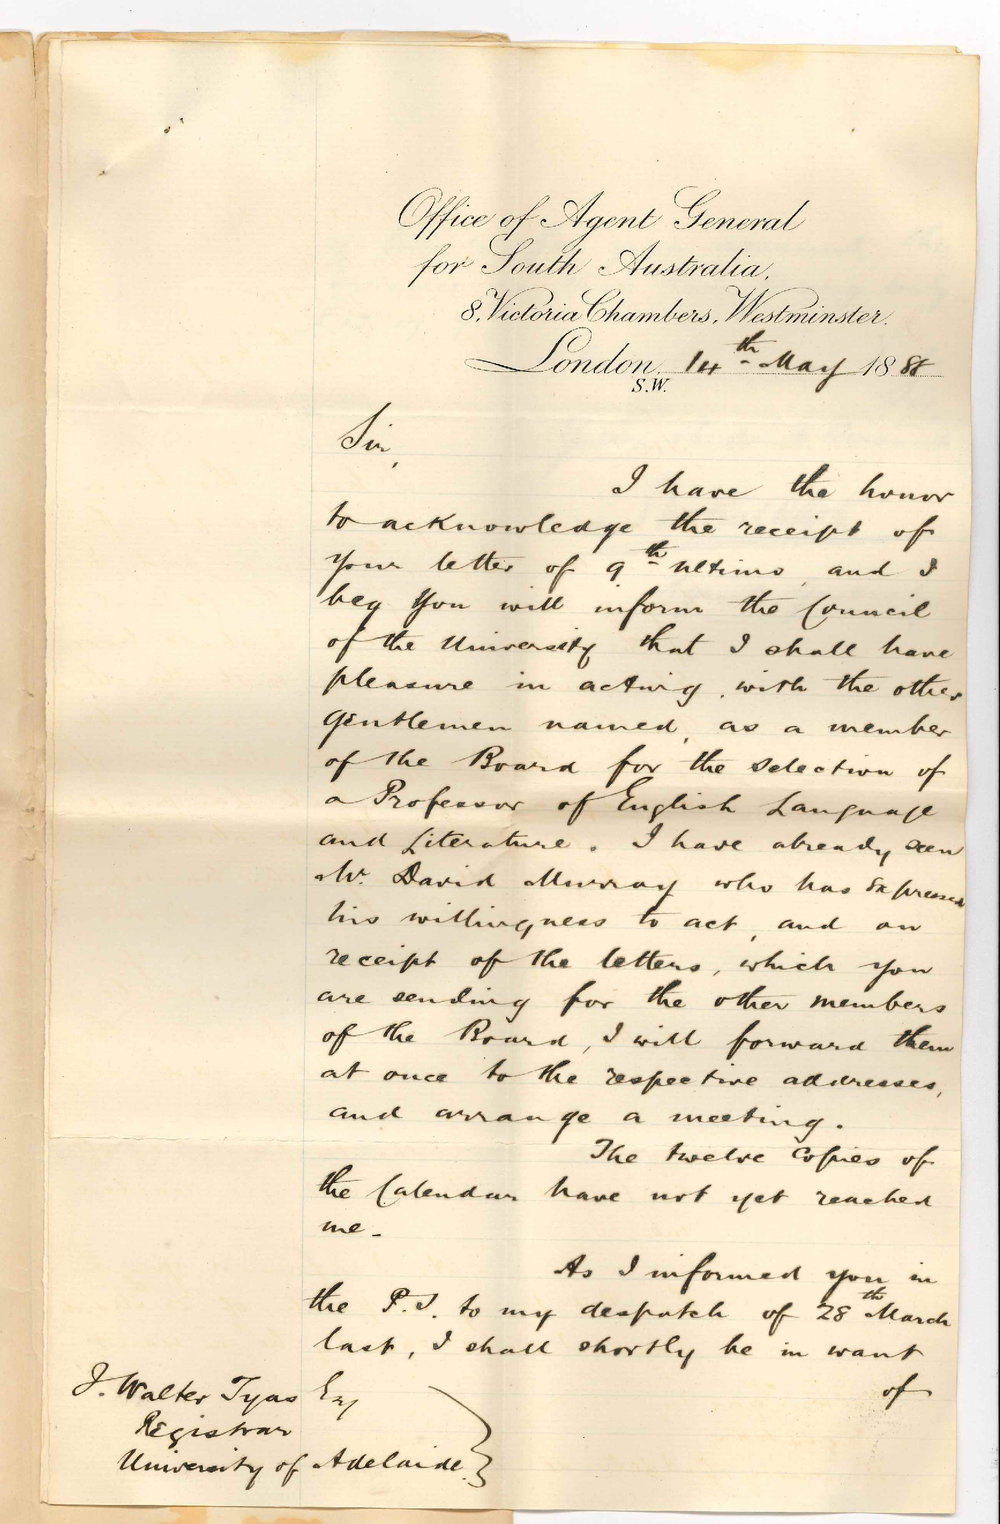 Office of Agent General
for South Australia,
8, Victoria Chambers, Westminster,
London, 14th May 1888
S.W.
Sir,
I have the honor
to acknowledge the receipt of
your letter of 9th ultimo, and I
beg you will inform the Council
of the University that I shall have
pleasure in acting, with the other
gentlemen named, as a member
of the Board for the selection of
a Professor of English Language
and Literature. I have already seen
Mr. David Murray who has expressed
his willingness to act, and on
receipt of the letters, which you
are sending for the other members
of the Board, I will forward them
at once to the respective addresses,
and arrange a meeting.
The twelve copies of
the Calendar have not yet reached
me.
As I informed you in
the P.S. to my despatch of 28th March
last, I shall shortly be in want
of
J. Walter Tyas Esq
Registrar
University of Adelaide.